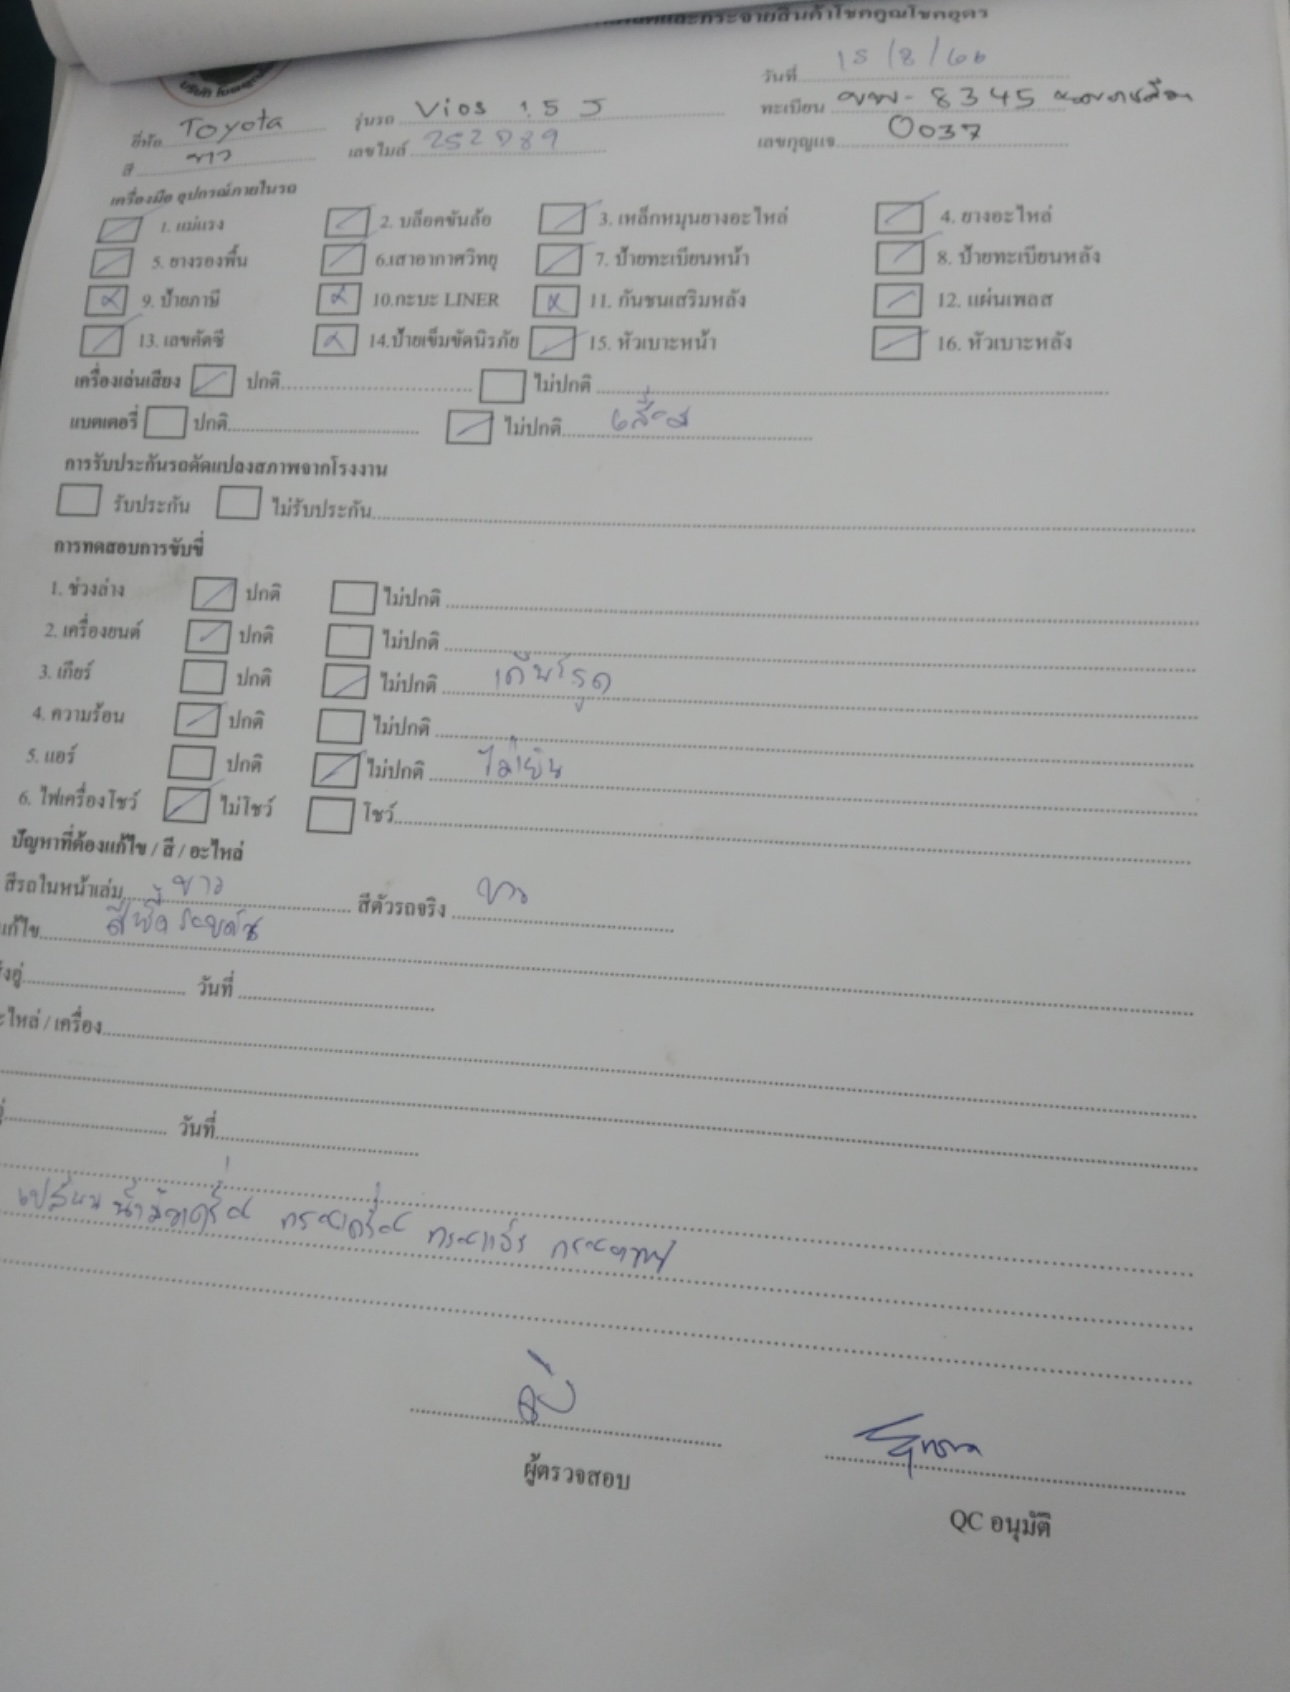 และกระจายสินค้าโชคคูณโชคอุดร
วันที่ 15/8/66
ยี่ห้อ Toyota รุ่นรถ Vios 1.5 J ทะเบียน 8345
สี ขาว เลขไมล์ 252089 เลขกุญแจ 0037
เครื่องมือ อุปกรณ์ภายในรถ
1. แม่แรง 2. บล็อคขันล้อ 3. เหล็กหมุนยางอะไหล่ 4. ยางอะไหล่
5. ยางรองพื้น 6.เสาอากาศวิทยุ 7. ป้ายทะเบียนหน้า 8. ป้ายทะเบียนหลัง
9. ป้ายภาษี 10.กะบะ LINER 11. กันชนเสริมหลัง 12. แผ่นเพลส
13. เลขคัตซี 14.ป้ายเข็มขัดนิรภัย 15. หัวเบาะหน้า 16. หัวเบาะหลัง
เครื่องเล่นเสียง ปกติ ไม่ปกติ
แบตเตอรี่ ปกติ ไม่ปกติ เสื่อม
การรับประกันรถดัดแปลงสภาพจากโรงงาน
รับประกัน ไม่รับประกัน
การทดสอบการขับขี่
1. ช่วงล่าง ปกติ ไม่ปกติ
2. เครื่องยนต์ ปกติ ไม่ปกติ
3. เกียร์ ปกติ ไม่ปกติ เกียร์รูด
4. ความร้อน ปกติ ไม่ปกติ
5. แอร์ ปกติ ไม่ปกติ ไม่เย็น
6. ไฟเครื่องโชว์ ไม่โชว์ โชว์
ปัญหาที่ต้องแก้ไข / สี / อะไหล่
สีรถในหน้าเล่ม ขาว สีตัวรถจริง ขาว
แก้ไข สีพื้น รอบคัน
วันที่
อะไหล่ / เครื่อง
วันที่
เปลี่ยน น้ำมันเครื่อง กรองเครื่อง กรองแอร์ กรองอากาศ
ผู้ตรวจสอบ
QC อนุมัติ